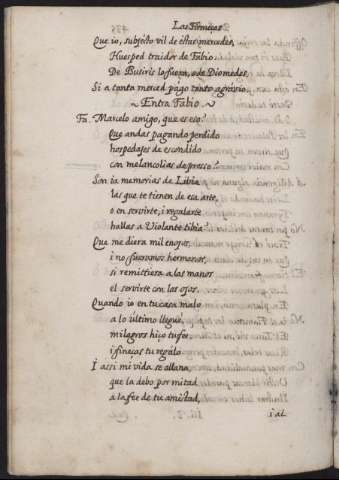 Las firmezas
Que io, subjecto vil de estas paredes,
Huesped traidor de Fabio,
De Busiris lo fuera, o de Diomedes,
Si a tanta merced pago tanto agravio.
~ Entra Fabio. ~
Fa. Marcelo amigo, que es eso?
Que andas pagando perdido
hospedajes de escondido
con melancolias de preso?
Son ia memorias de Libia
las que te tienen de esa arte,
o en servirte, i regalarte
hallas a Violante tibia?
Que me diera mil enojos,
i no fueramos hermanos,
si remitiera a las manos
el servirte con los ojos.
Quando io en tu casa malo
a lo ultimo llegue,
milagros hiço tu fee,
i finezas tu regalo
I assi mi vida se allana,
que la debo por mitad
a la fee de tu amistad,
i al